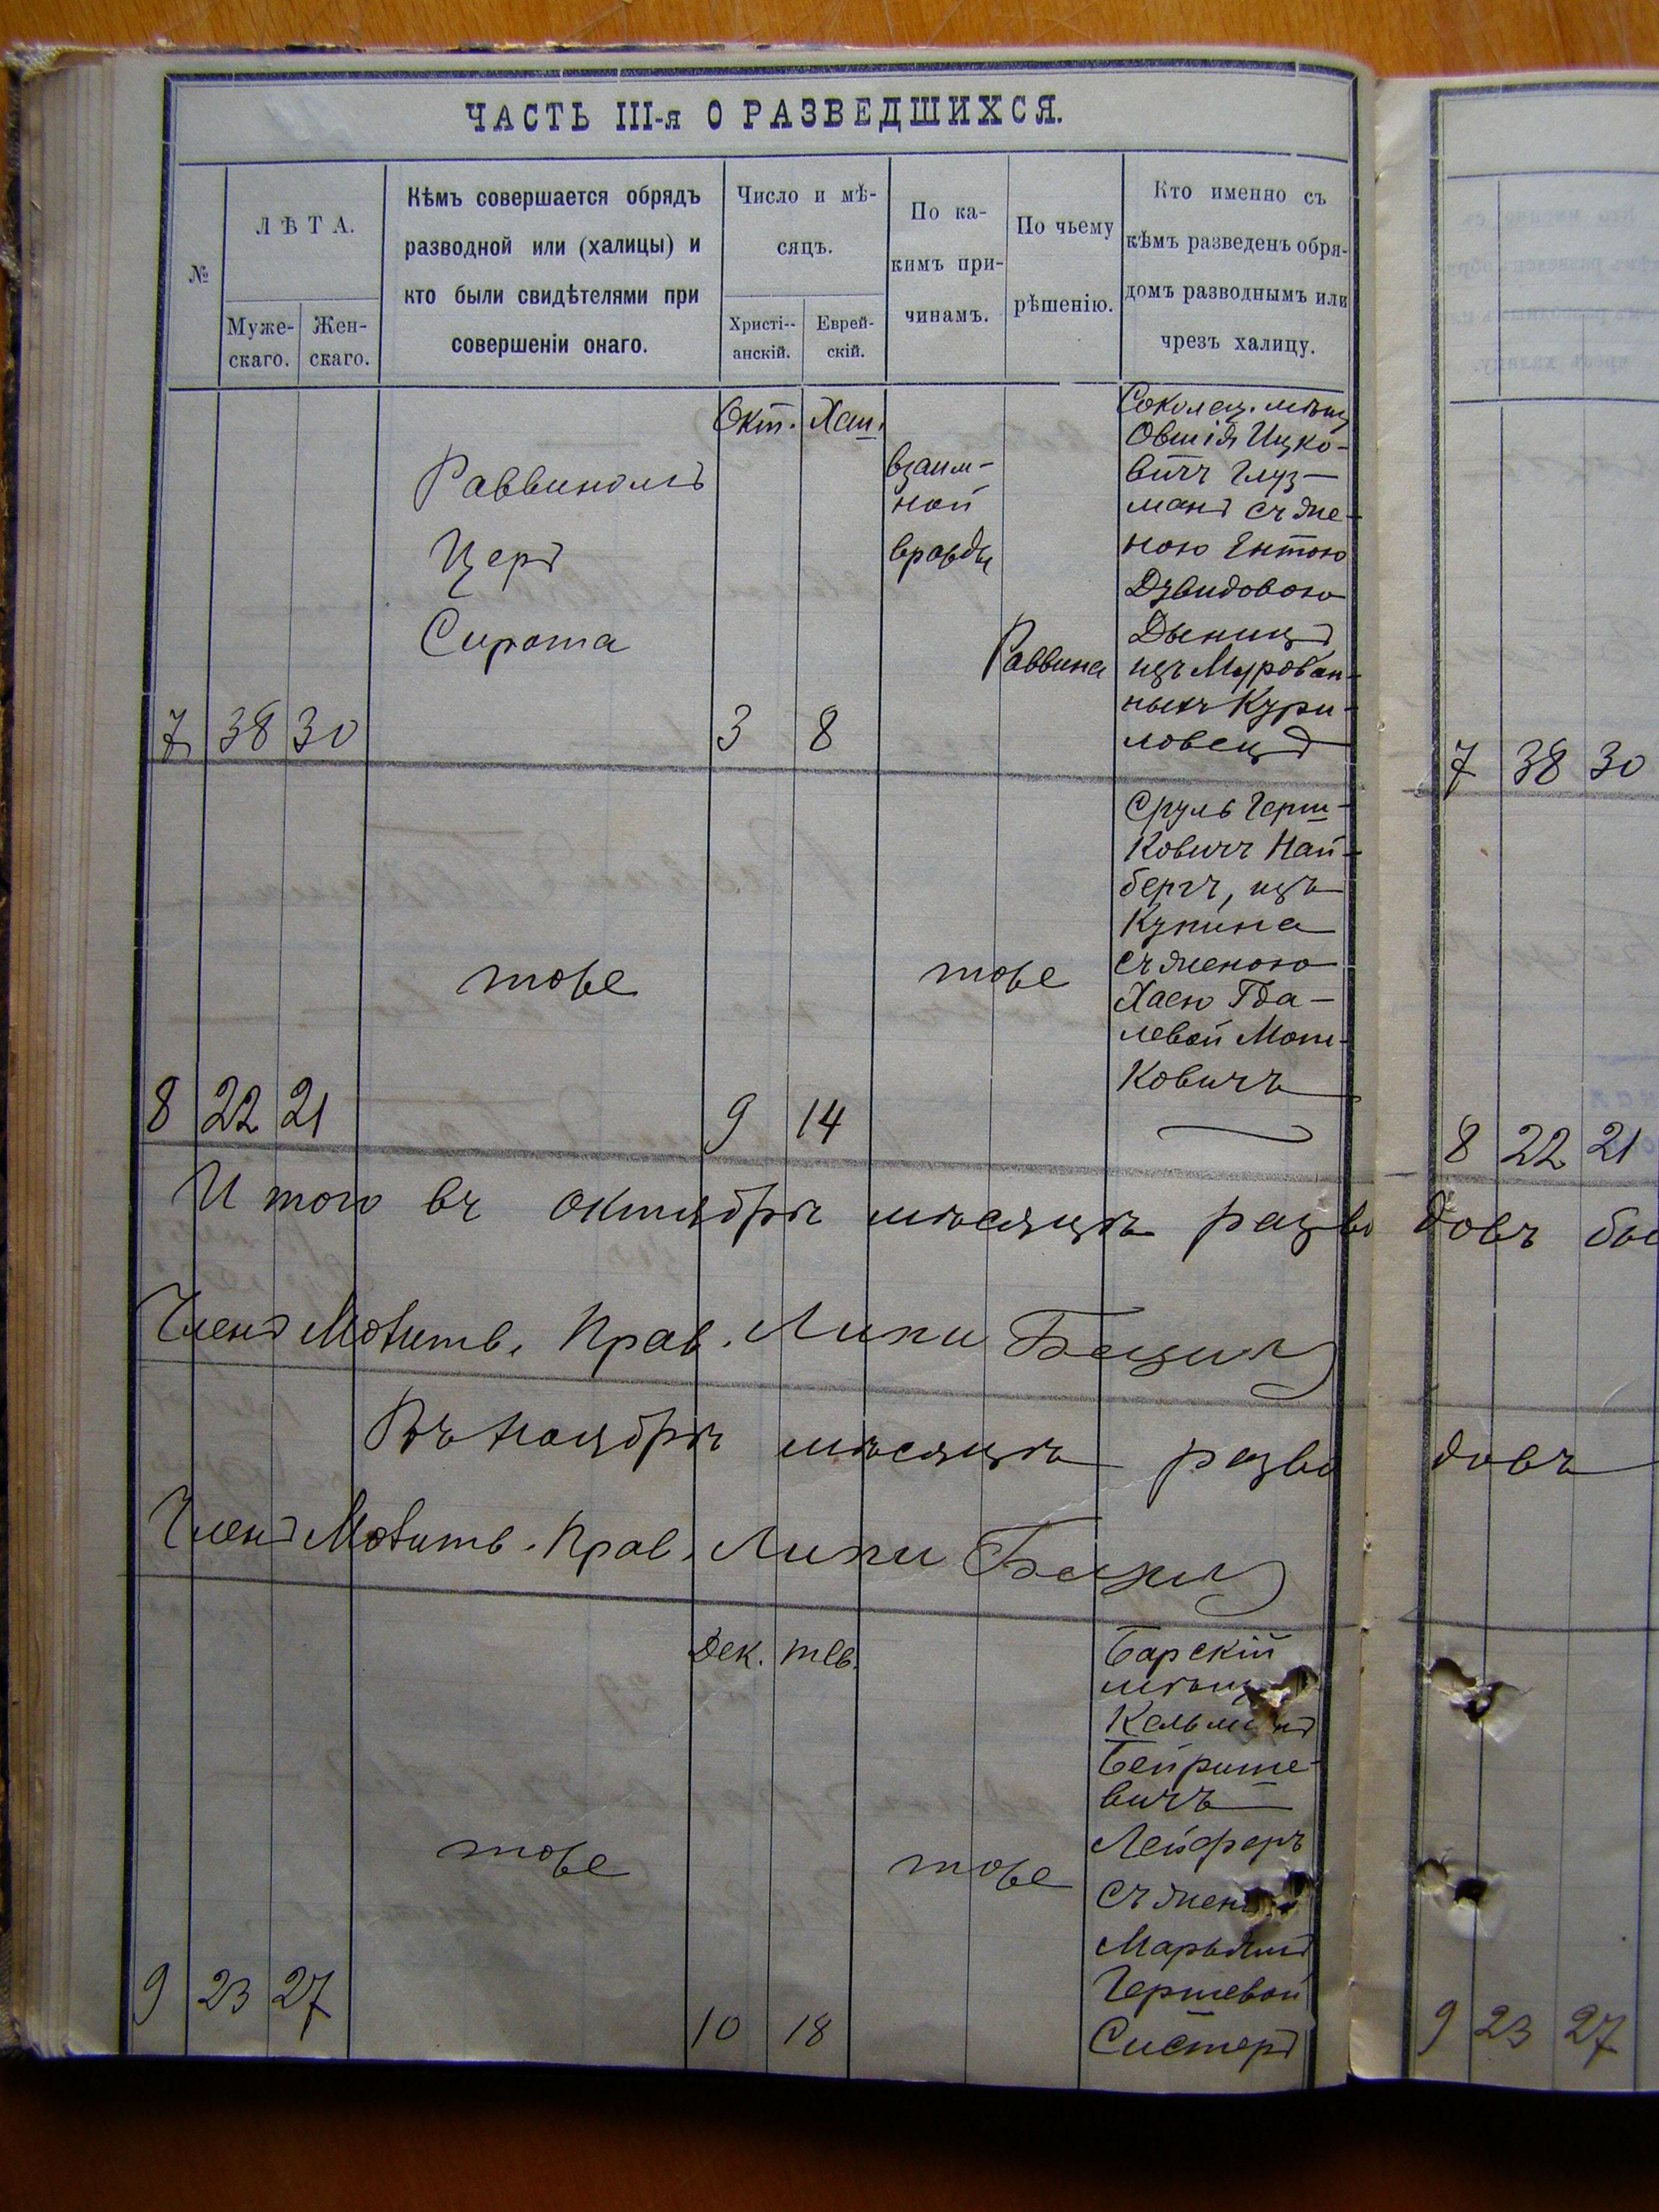 ЧАСТЬ III-я О РАЗВЕДШИХСЯ.
№
ЛѢТА.
Муже-
скаго.
Жен-
скаго.
Кѣмъ совершается обрядъ
разводной или (халицы) и
кто были свидѣтелями при
совершеніи онаго.
Число и мѣ-
сяцъ.
Христі-
анскій.
Еврей-
скій.
По ка-
кимъ при-
чинамъ.
По чьему
рѣшенію.
Кто именно съ
кѣмъ разведенъ обря-
домъ разводнымъ или
чрезъ халицу.
7 38 30
Раввиномъ
Церъ
Сирота
Окт. Хеш.
3 8
взаим-
ной
вражды
Раввина
Соколец. мѣщ
Овшія Ицко-
вичъ Глуз-
манъ съ же-
ною Ентою
Дувидовою
Дыницъ
изъ Мурован-
ныхъ Кури-
ловецъ
7 38 30
8 22 21
тоже
9 14
тоже
Сруль Герш-
ковичъ Най-
бергъ, изъ
Купина
съ женою
Хаею Гда-
левой Мош-
ковичъ
8 22 21
Итого въ октябрѣ мѣсяцѣ разво довъ
Членъ Молитв. Прав. Липи
Въ Ноябрѣ мѣсяцѣ разво довъ
Членъ Молитв. Прав. Липи
9 23 27
тоже
Дек. Тев.
10 18
тоже
Барскій
мѣщ
Кельманъ
Бейрише-
вичъ
Лейферъ
съ жен
Марьямъ
Гершевой
Систеръ
9 23 27